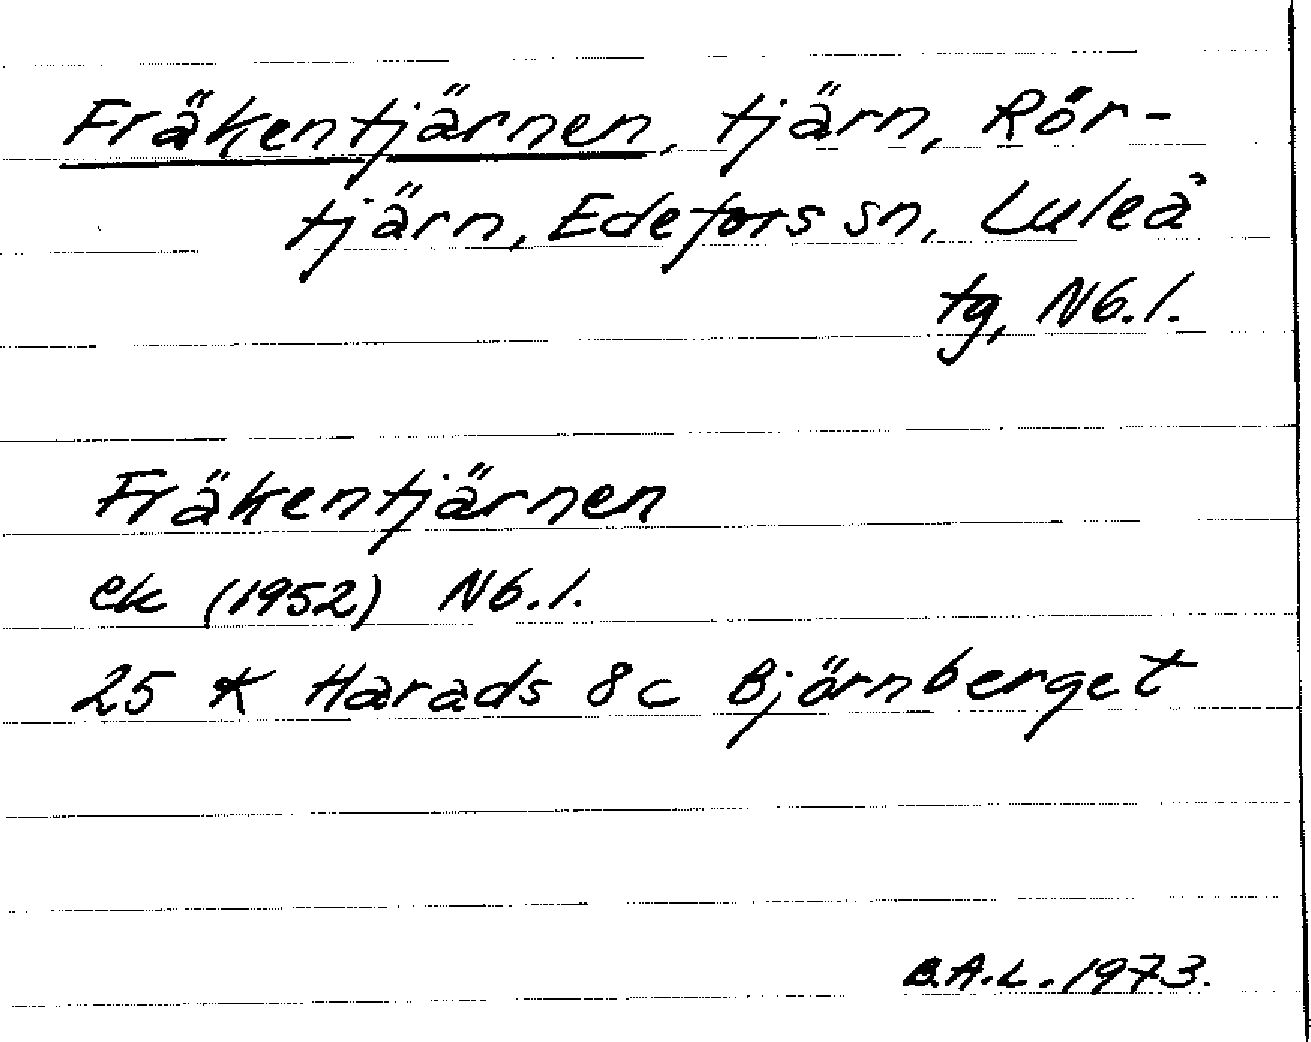 Fräkentjärnen, tjärn, Rör-
tjärn, Edefors sn, Luleå
tg, Nb. l.
Fräkentjärnen
ek (1952) Nb. l.
25 K Harads 8c Björnberget
B.A.L. 1973.